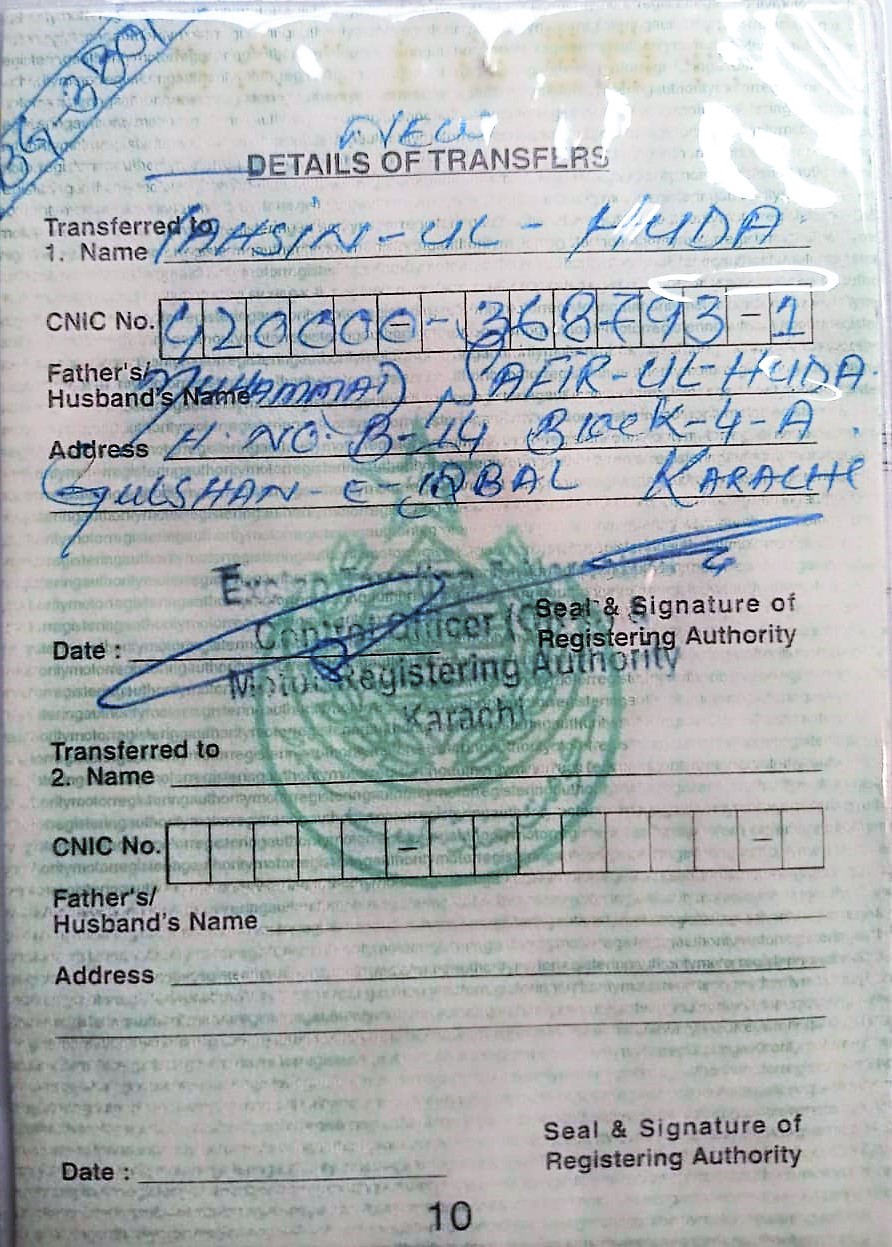 NEW
DETAILS OF TRANSFERS
Transferred to
1. Name -UL-HUDA
CNIC No. 420000-368793-1
Father's/
Husband's Name MUHAMMAD SAFIR-UL-HUDA.
Address H. NO. B-14 Block-4-A.
GULSHAN-E-IQBAL KARACHI
Excise Taxation &
Control Officer
Motor Registering Authority
Karachi
Seal & Signature of
Date : Registering Authority
Transferred to
2. Name
CNIC No. - -
Father's/
Husband's Name
Address
Seal & Signature of
Date : Registering Authority
10